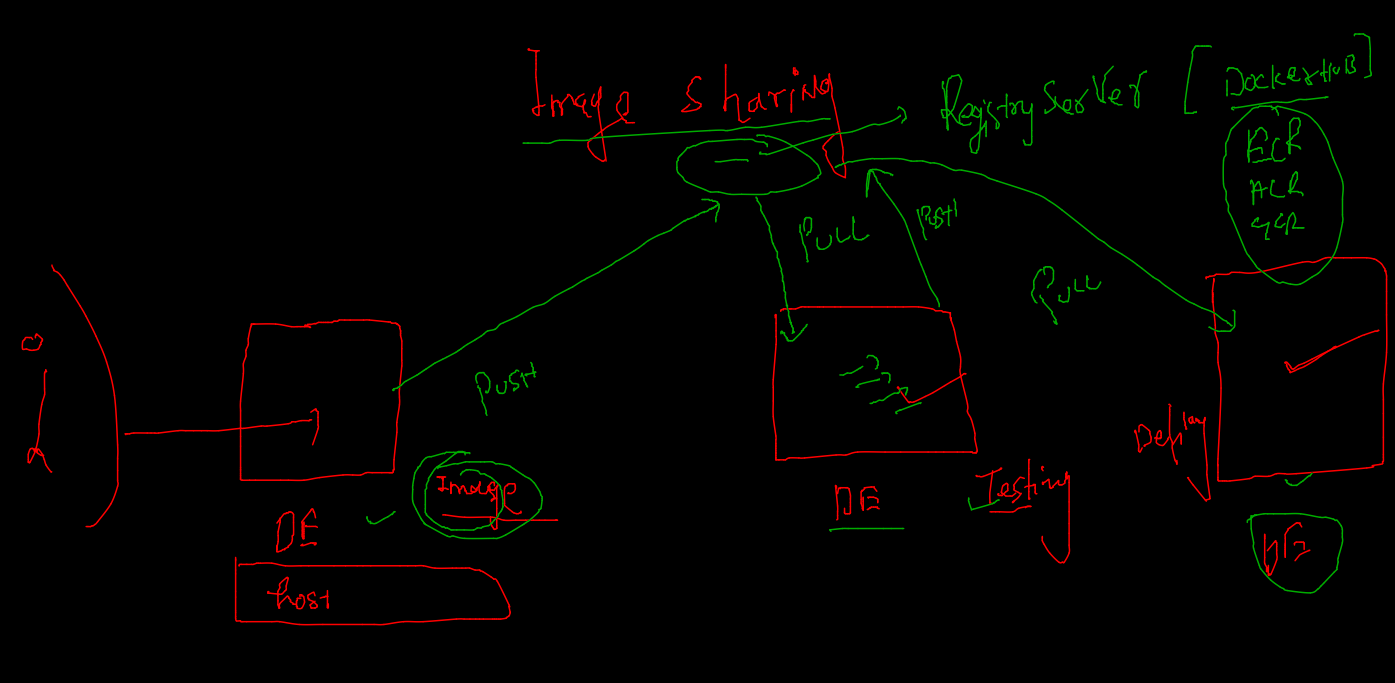 Image Sharing
Registry Server [DockerHuB]
ECR
ACR
GCR
PULL
PUSH
PULL
PUSH
Image
Deploy
Testing
DE
DE
DE
host